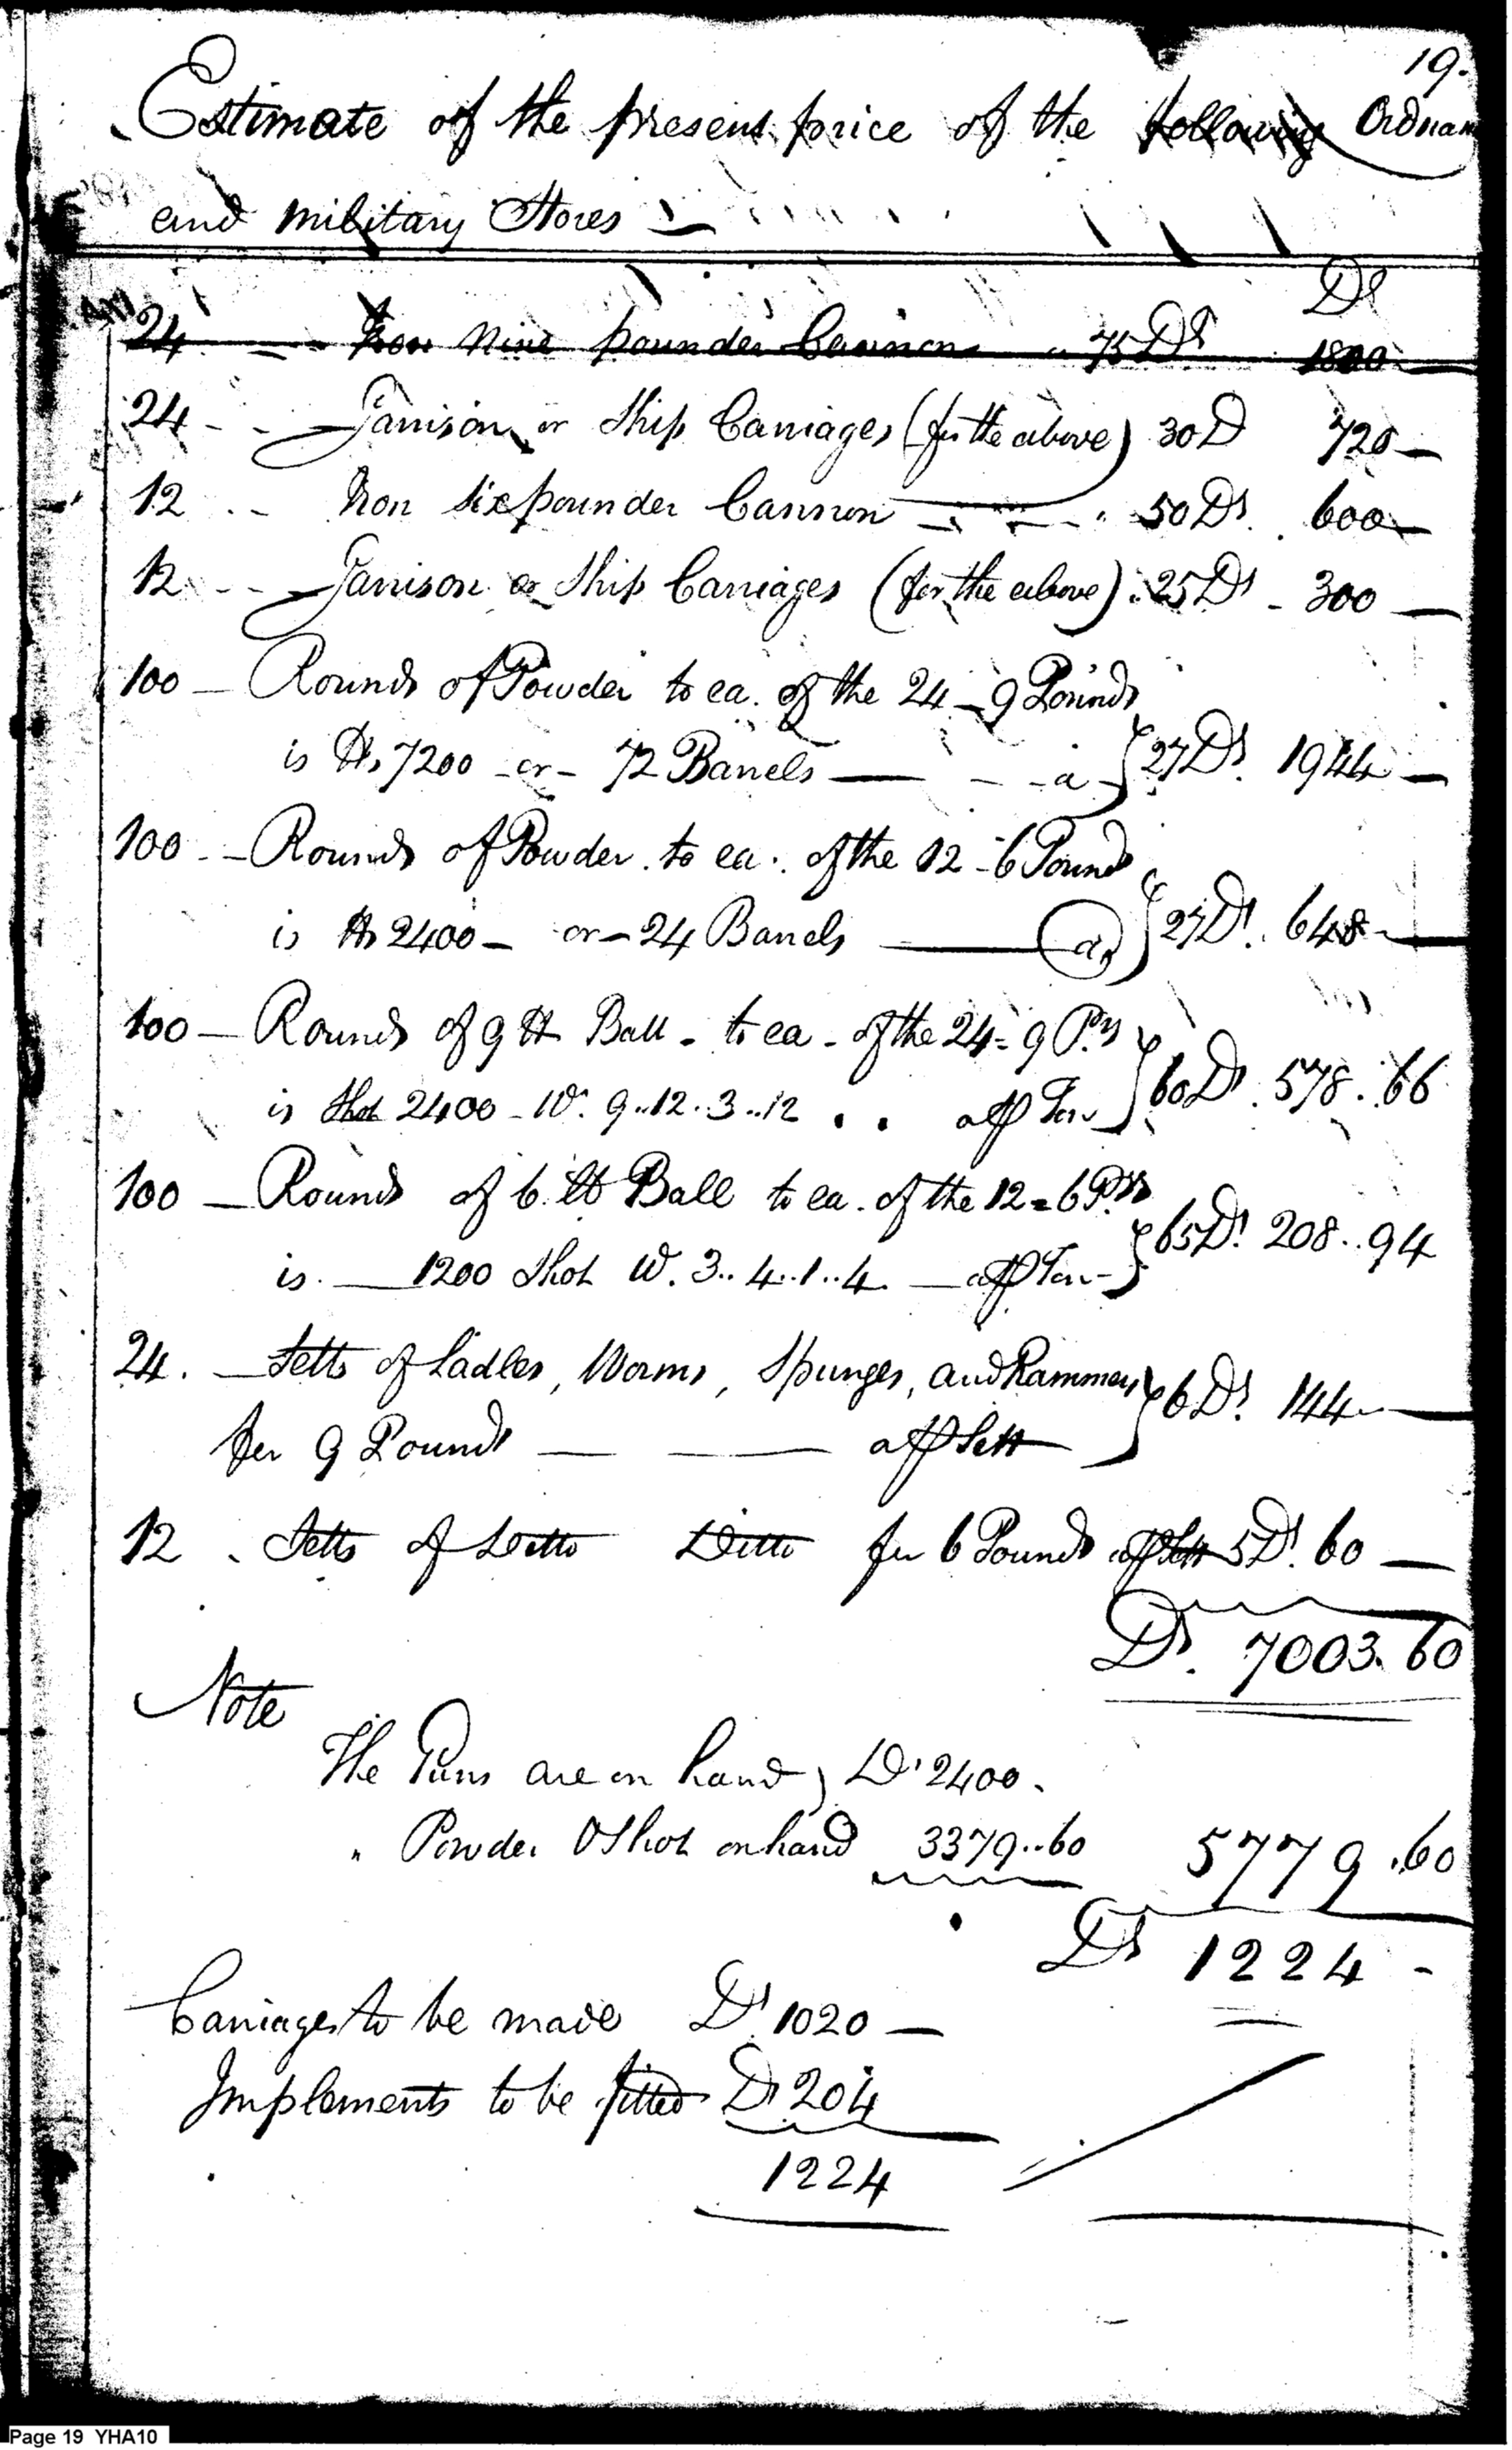 19.
Estimate of the present price of the following Ordnan
and Military Stores
Ds
24 Iron Nine pounder Cannon a 75 Ds 1800
24 Garrison or Ship Carriages (for the above) 30 D 720
12 Iron six pounder Cannon 50 Ds. 600
12 Garrison or Ship Carriages (for the above) 25 Ds 300
100 Rounds of Powder to ea. of the 24 - 9 Pounds
is lbs 7200 or 72 Barrels a 27 Ds. 1944
100 Rounds of Powder to ea. of the 12 - 6 Pounds
is lbs 2400 or 24 Barrels a 27 Ds. 648
100 Rounds of 9 lb Ball - to ea - of the 24 = 9 Prs
is Shot 2400 - W. 9..12..3..12 a P Ton 60 Ds. 578.66
100 Rounds of 6 lb Ball to ea. of the 12 = 6 Prs
is 1200 Shot W. 3..4..1..4 a P Ton 65 Ds. 208..94
24. Setts of Ladles, Worms, Spunges, and Rammers
for 9 Pounds a P Sett 6 Ds. 144
12 Setts of Ditto Ditto for 6 Pounds a P Sett 5 Ds. 60
Ds. 7003.60
Note
The Guns are on hand Ds 2400.
" Powder & Shot on hand 3379..60 5779.60
Ds 1224 -
Carriages to be made Ds 1020
Implements to be fitted Ds 204
1224
Page 19 YHA10